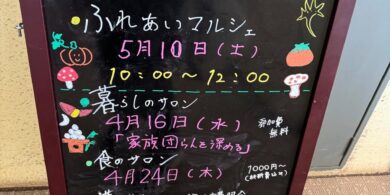 ・ふれあいマルシェ
5月10日(土)
10:00～12:00
・暮らしのサロン
4月16日(水) 参加費無料
「家族団らんを深める」
・食のサロン 1000円～
4月24日(木) (材料費込み)